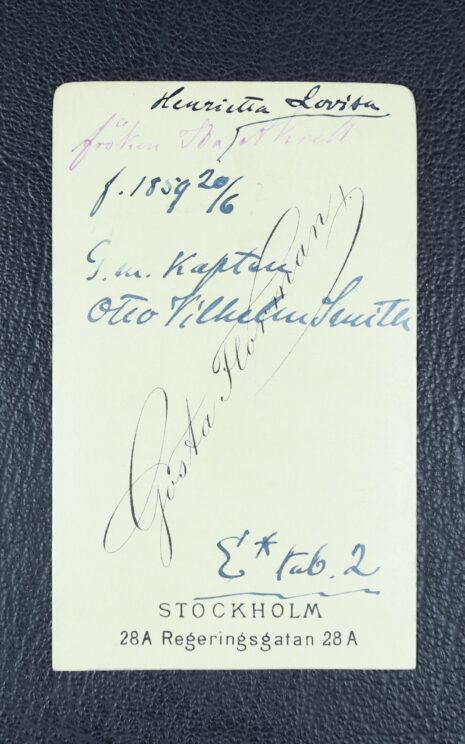 Henrietta Lovisa
fröken Ida Akrell
f. 1859 20/6
G.m. Kapten
Otto Vilhelm Smith
Gösta Florman
E* tab. 2
STOCKHOLM
28A Regeringsgatan 28A